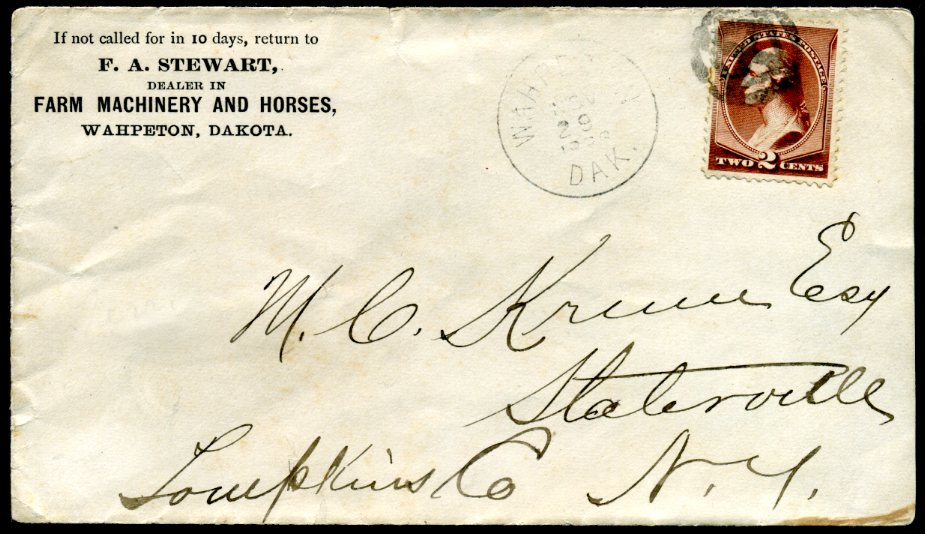 If not called for in 10 days, return to
F. A. STEWART,
DEALER IN
FARM MACHINERY AND HORSES,
WAHPETON, DAKOTA.
WAH N
DAK.
UNITED STATES POSTAGE
TWO 2 CENTS
M. C. Krum Esq
Slaterville
Tompkins Co N. Y.